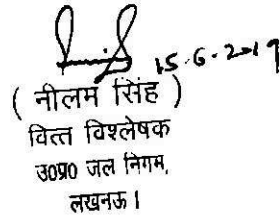 15.6.2019
( नीलम सिंह )
वित्त विश्लेषक
उ०प्र० जल निगम,
लखनऊ।